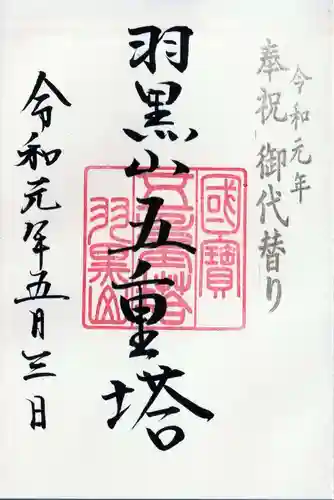 今和元年
奉祝 御代替り
羽黒山五重塔
國寳
五重塔
羽黒山
令和元年五月三日